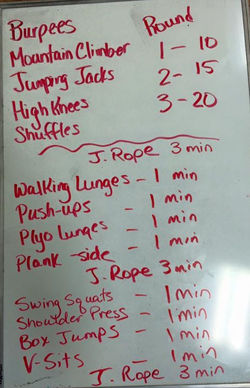 Burpees Round
Mountain Climber 1 - 10
Jumping Jacks 2 - 15
High Knees 3 - 20
Shuffles
J. Rope 3 min
Walking Lunges - 1 min
Push-ups - 1 min
Plyo Lunges - 1 min
Plank -side - 1 min
J. Rope 3 min
Swing Squats - 1 min
Shoulder Press - 1 min
Box Jumps - 1 min
V-Sits - 1 min
J. Rope 3 min